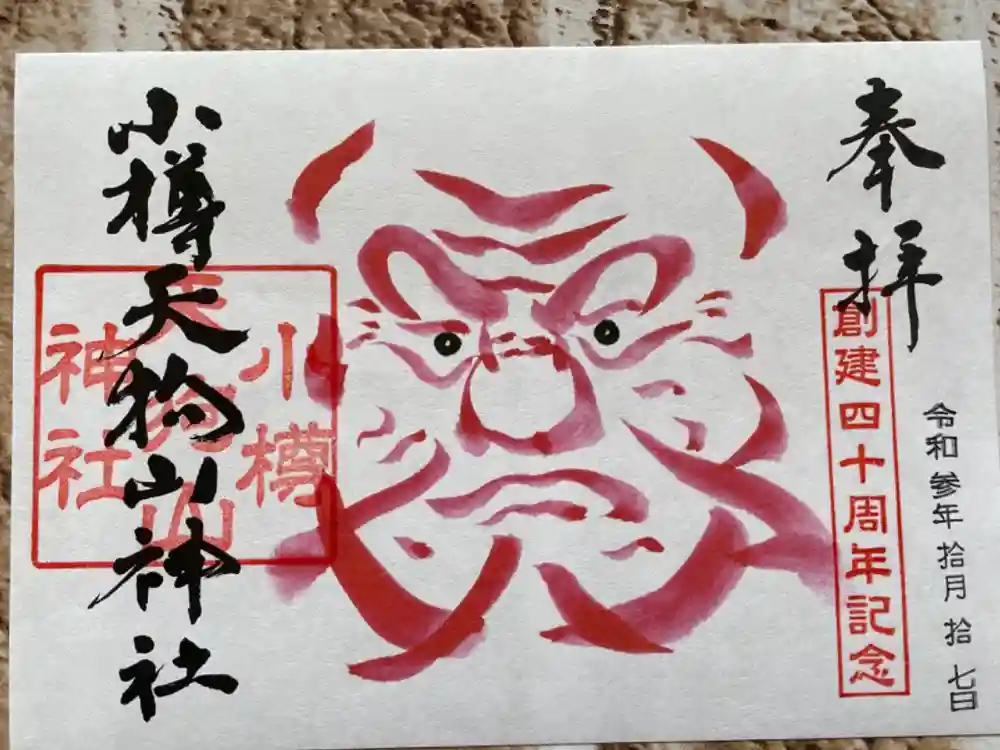 奉拝
創建四十周年記念
令和参年拾月拾七日
小樽天狗山神社
小樽
天狗山
神社